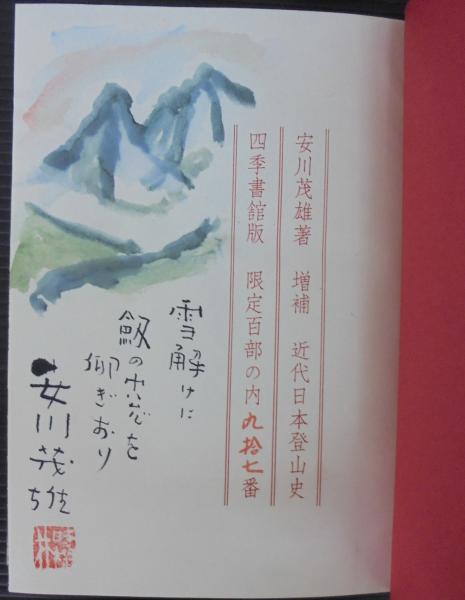 安川茂雄著 増補 近代日本登山史
四季書館版 限定百部の内九拾七番
雪解けに
の窓を
仰ぎおり
安川茂雄